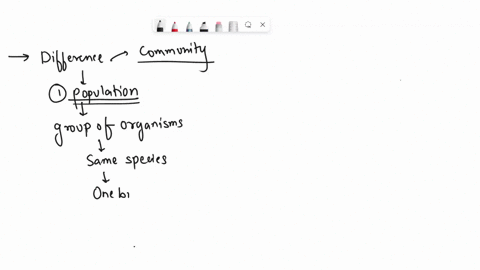 → Difference → Community
↓
① Population
↓
group of organisms
↓
Same species
↓
One bi